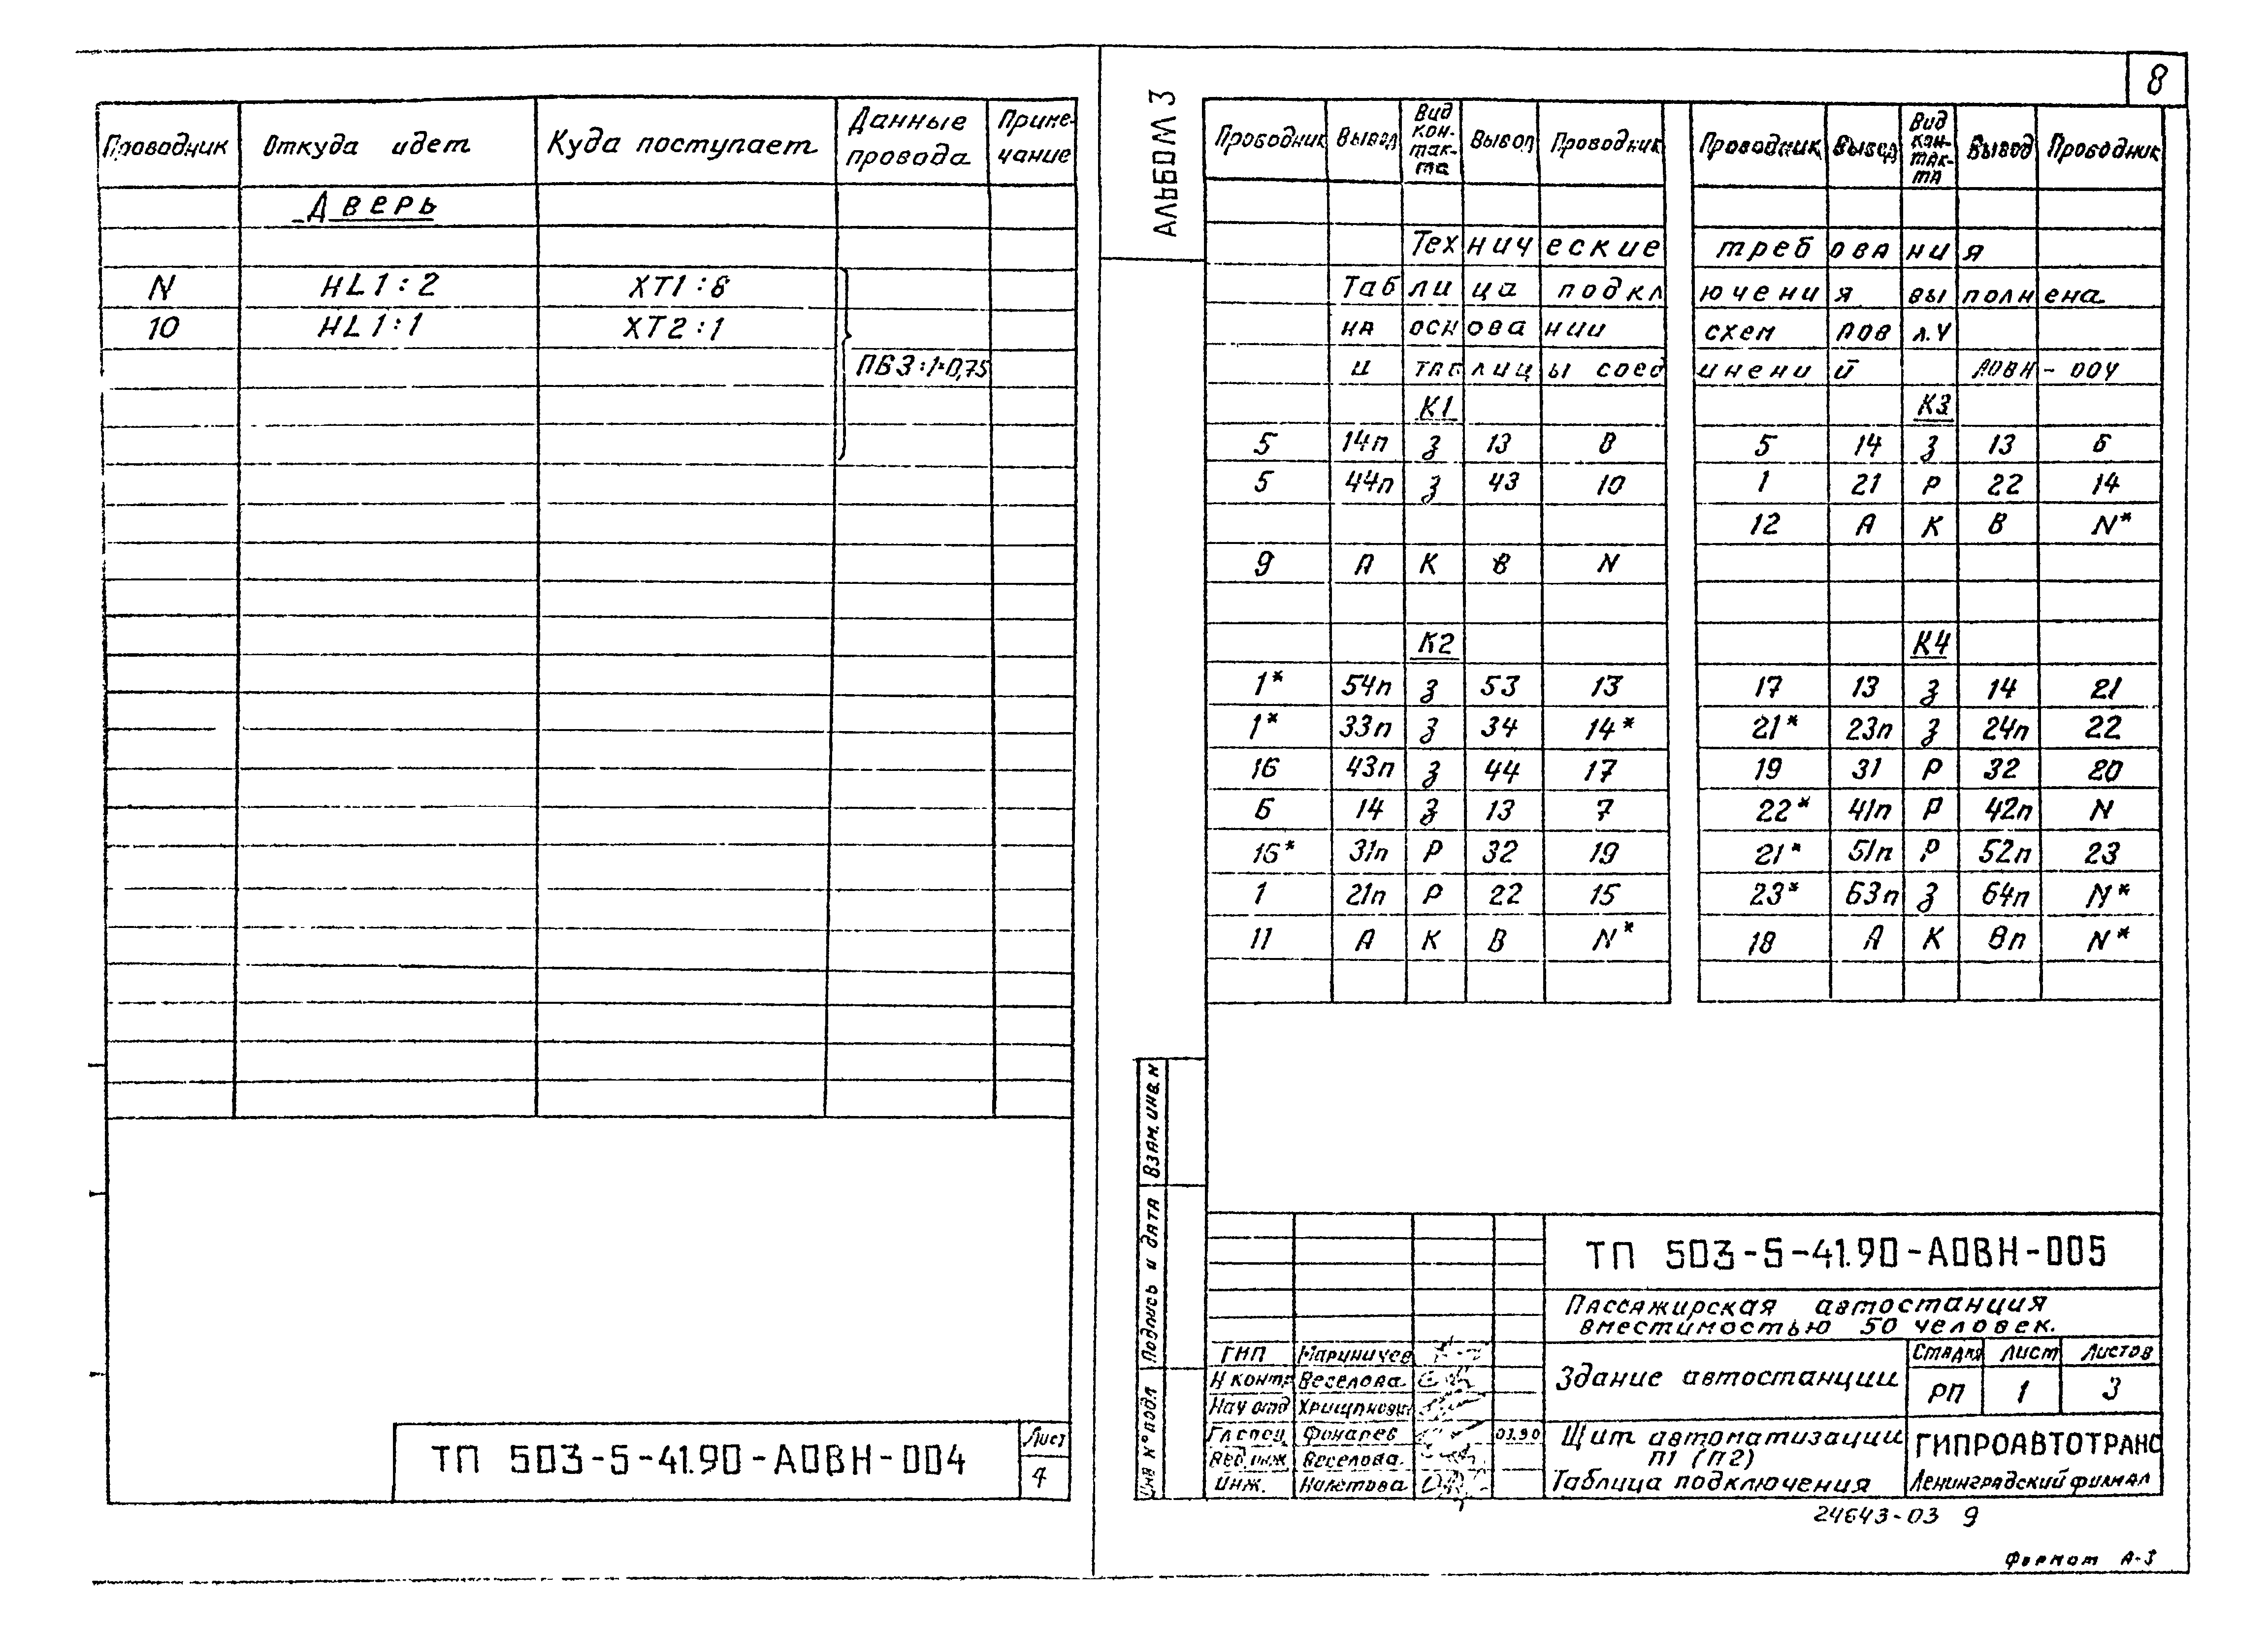 8
АЛЬБОМ 3
Проводник Откуда идет Куда поступает Данные провода Приме-чание
Дверь
N HL1:2 XT1:8
10 HL1:1 XT2:1
ПВ3:1·0,75
ТП 503-5-41.90-АОВН-004
Лист
4
Проводник Вывод Вид кон-так-та Вывод Проводник Проводник Вывод Вид кон-так-та Вывод Проводник
Технические требования
Таблица подключения выполнена
на основании схем АОВ л.4
и таблицы соединений АОВН-004
К1 К3
5 14п З 13 8 5 14 З 13 6
5 44п З 43 10 1 21 Р 22 14
12 А К В N*
9 А К В N
К2 К4
1* 54п З 53 13 17 13 З 14 21
1* 33п З 34 14* 21* 23п З 24п 22
16 43п З 44 17 19 31 Р 32 20
6 14 З 13 7 22* 41п Р 42п N
16* 31п Р 32 19 21* 51п Р 52п 23
1 21п Р 22 15 23* 63п З 64п N*
11 А К В N* 18 А К Вп N*
Взам. инв. N
Подпись и дата
Инв N° подл
ТП 503-5-41.90-АОВН-005
Пассажирская автостанция
вместимостью 50 человек.
ГИП Мариничев
Н контр Веселова
Нач отд
Гл спец Фонарев 03.90
Вед. инж Веселова
Инж. Налетова
Здание автостанции
Стадия Лист Листов
РП 1 3
Щит автоматизации
П1 (П2)
Таблица подключения
ГИПРОАВТОТРАНС
Ленинградский филиал
24643-03 9
Формат А-3